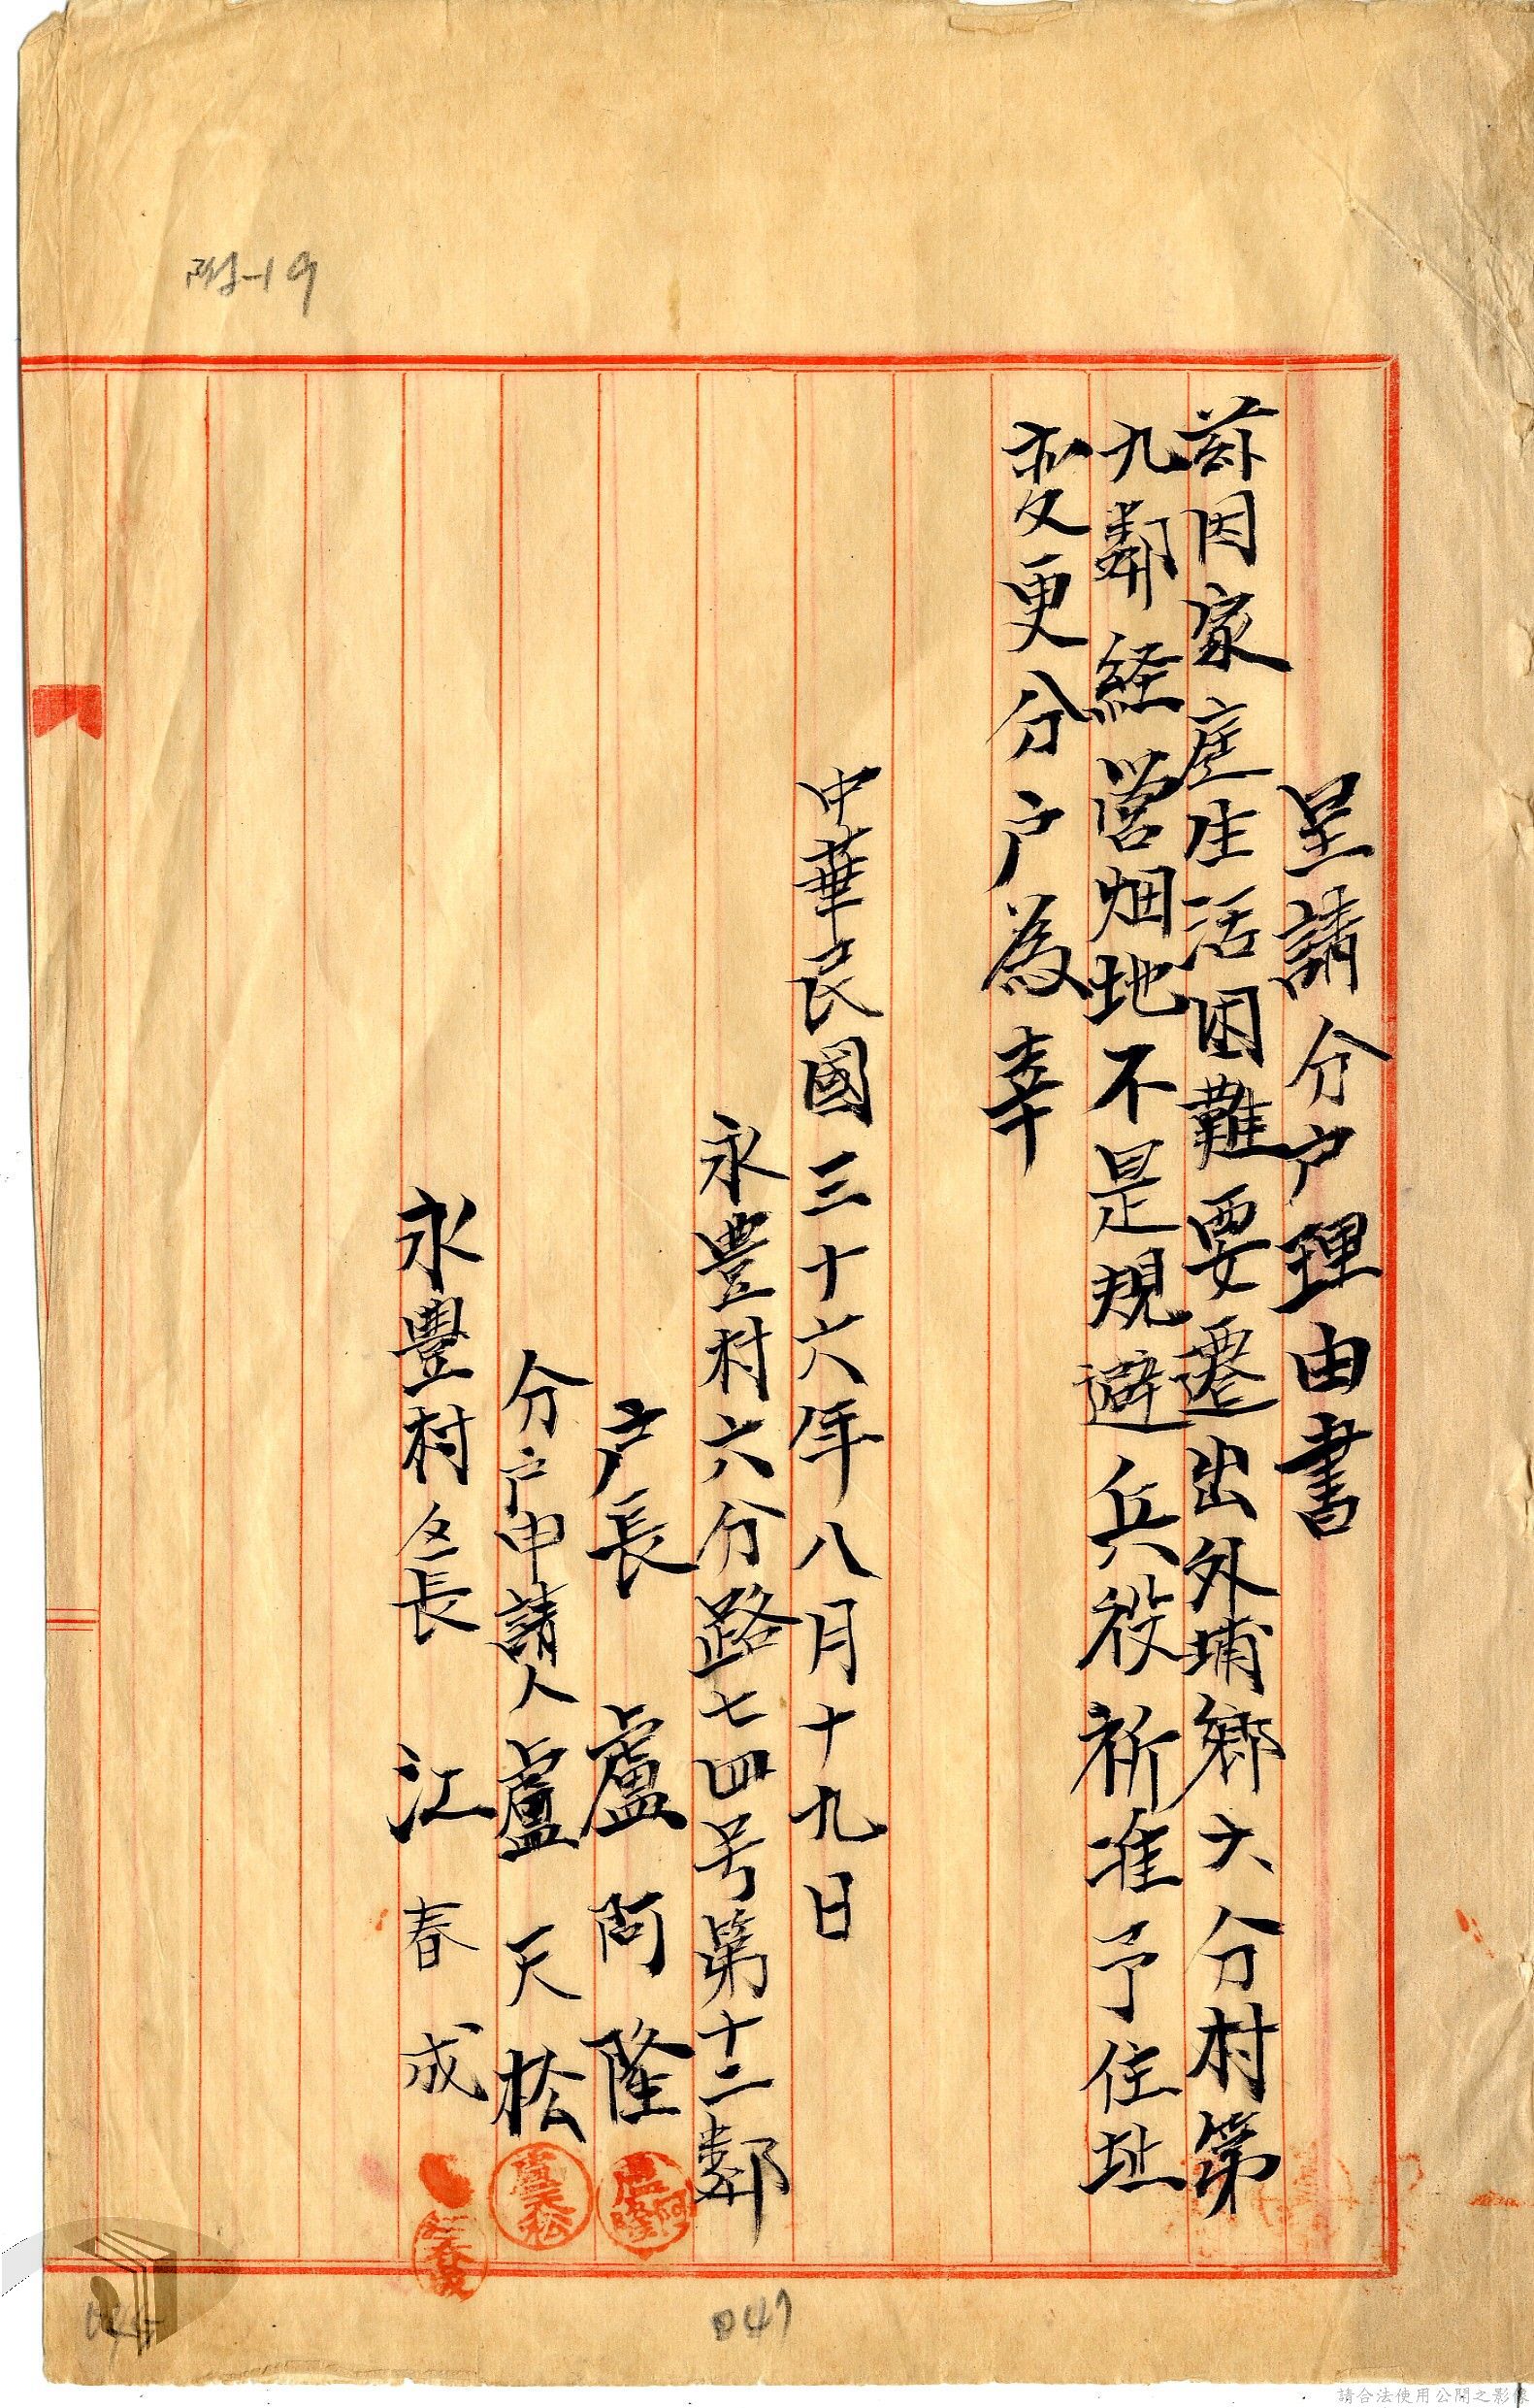 附-19
呈請分户理由書
茲因家庭生活困難要遷出外埔鄉六分村第
九鄰経営畑地不是規避兵役祈准予住址
变更分户為幸
中華民國三十六年八月十九日
永豊村六分路七四号第十二鄰
户長 盧阿隆
盧阿隆
分户申請人 盧天松
盧天松
永豊村区長 江春成
江春成
047
請合法使用公開之影像